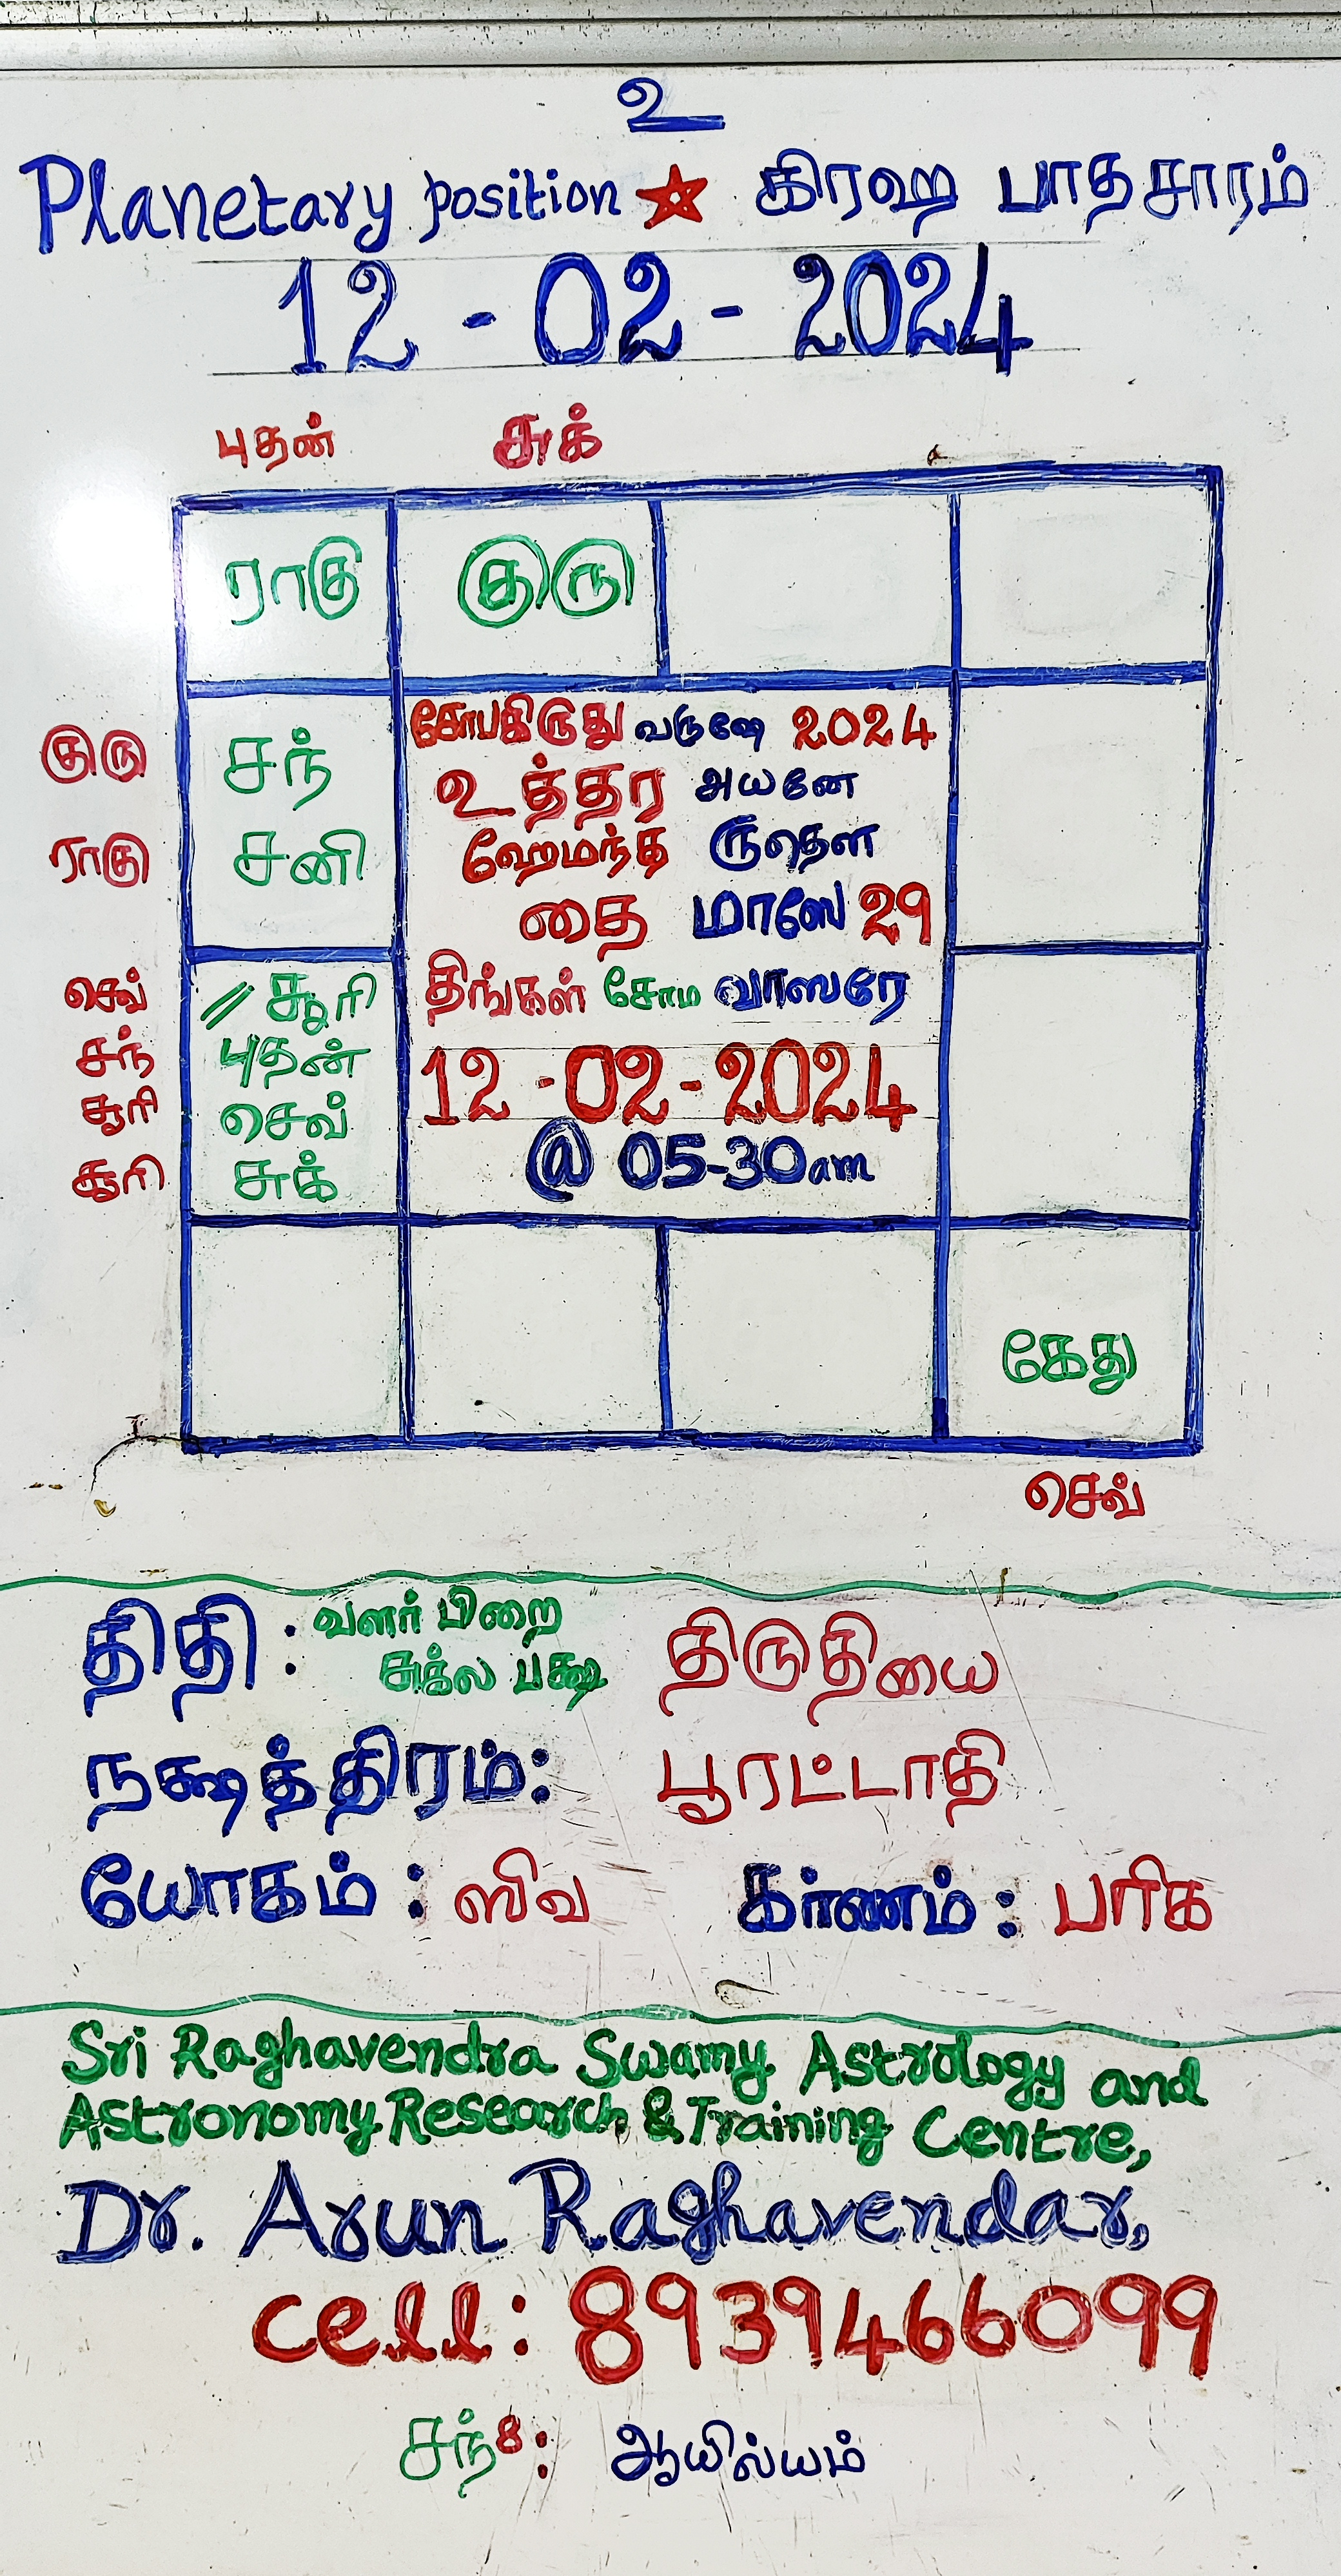 உ
Planetary position கிரஹ பாதசாரம்
12 - 02 - 2024
புதன் சுக்
ராகு குரு
குரு சந்
ராகு சனி
சோபகிருது வருஷே 2024
உத்தர அயனே
ஹேமந்த ருதௌ
தை மாஸே 29
திங்கள் சோம வாஸரே
12 -02-2024
@ 05-30am
செவ் // சூரி
சந் புதன்
சூரி செவ்
சூரி சுக்
கேது
செவ்
திதி : வளர் பிறை
சுக்ல பக்ஷ திருதியை
நக்ஷத்திரம்: பூரட்டாதி
யோகம் : ஸிவ கர்ணம் : பரிக
Sri Raghavendra Swamy Astrology and
Astronomy Research & Training Centre,
Dr. Arun Raghavendar,
cell: 8939466099
சந்8: ஆயில்யம்